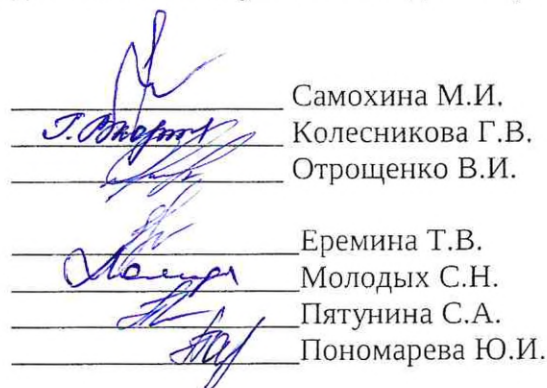 Самохина М.И.
Колесникова Г.В.
Отрощенко В.И.
Еремина Т.В.
Молодых С.Н.
Пятунина С.А.
Пономарева Ю.И.